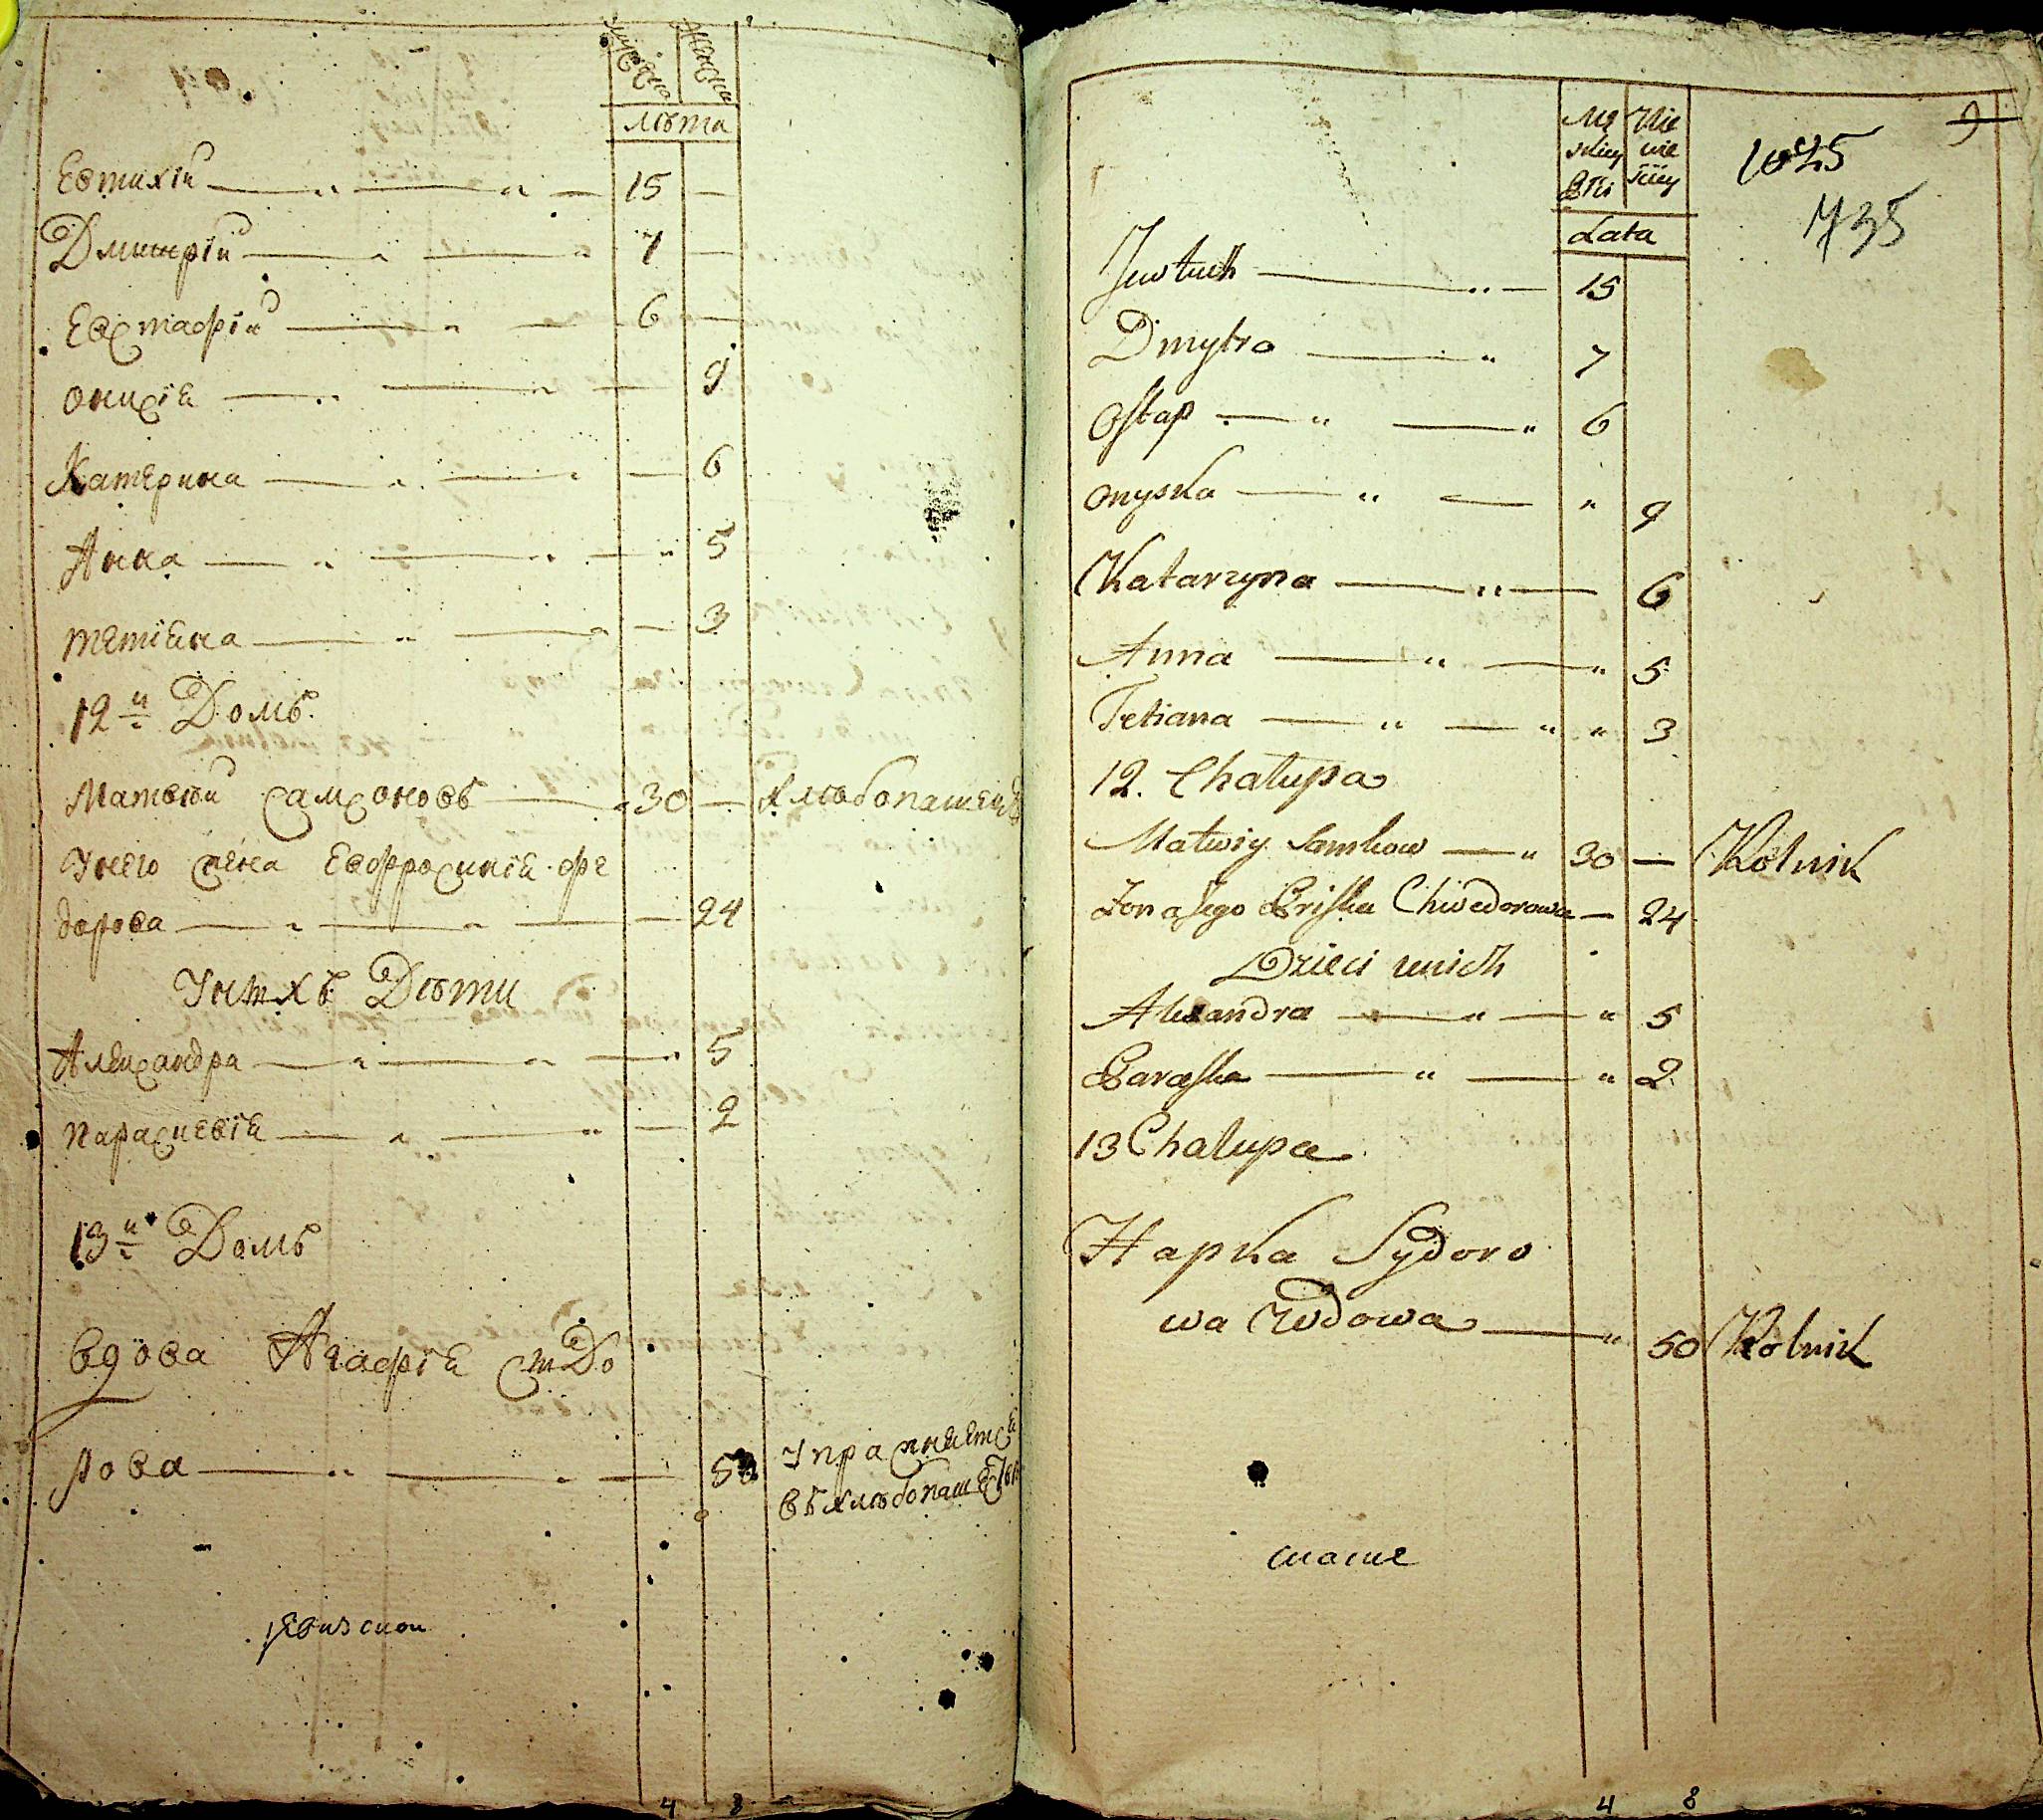 мужеска женска
лѣта
Евтихїй 15 —
Дмитрїй 7 —
Евстафїй 6 —
Онисїя 9
Катерина — 6
Анна 5
Тетїяна — 3
12й Домъ
Матвѣй Самсоновъ 30 — хлѣбопашецъ
У него жена Евфросинїя Фе
дорова — 24
У нихъ Дѣти
Александра 5
Параскевїя — 2
13й Домъ
Вдова Агафїя Сидо
рова — 50 Упражняется
въ хлѣбопашествѣ
ревизскои
4 8
9
1025
735
Mę Nie
skiey wie
Płci sciey
Lata
Jewtuch 15
Dmytro 7
Ostap 6
Onyska 9
Katarzyna 6
Anna 5
Tetiana 3
12. Chalupa
Matwiy Samkow 30 — Rolnik
Zona Jego Priska Chwedorowa — 24
Dzieci unich
Alexandra 5
Paraska 2
13 Chalupa
Hapka Sydoro
wa Wdowa 50 Rolnik
4 8